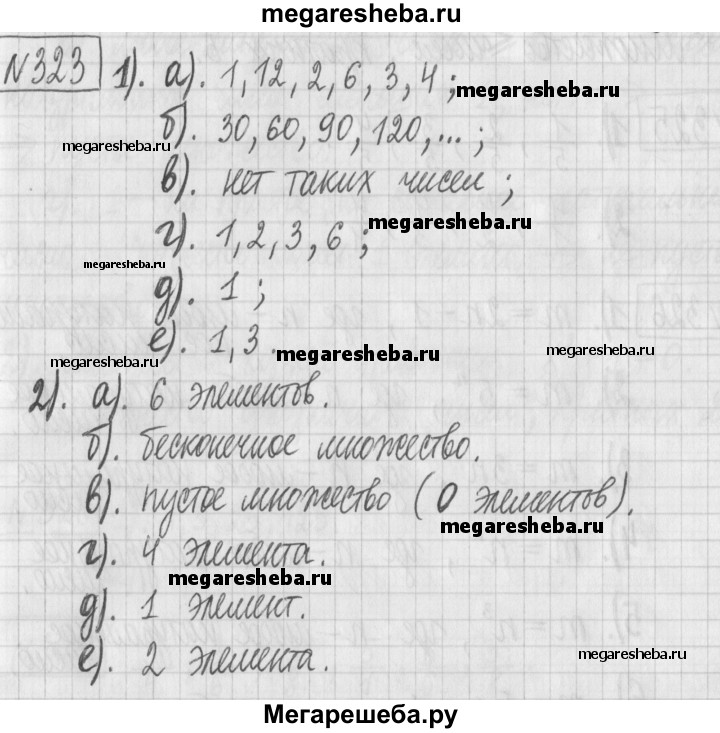 megaresheba.ru
№323 1). а). 1, 12, 2, 6, 3, 4 ; megaresheba.ru
megaresheba.ru б). 30, 60, 90, 120, ... ;
в). нет таких чисел ;
г). 1, 2, 3, 6 ; megaresheba.ru
megaresheba.ru д). 1 ;
megaresheba.ru е). 1, 3 . megaresheba.ru megaresheba.ru
2). а). 6 элементов.
б). бесконечное множество.
в). пустое множество ( 0 элементов).
megaresheba.ru
г). 4 элемента.
megaresheba.ru
д). 1 элемент.
е). 2 элемента. megaresheba.ru
Мегарешеба.ру